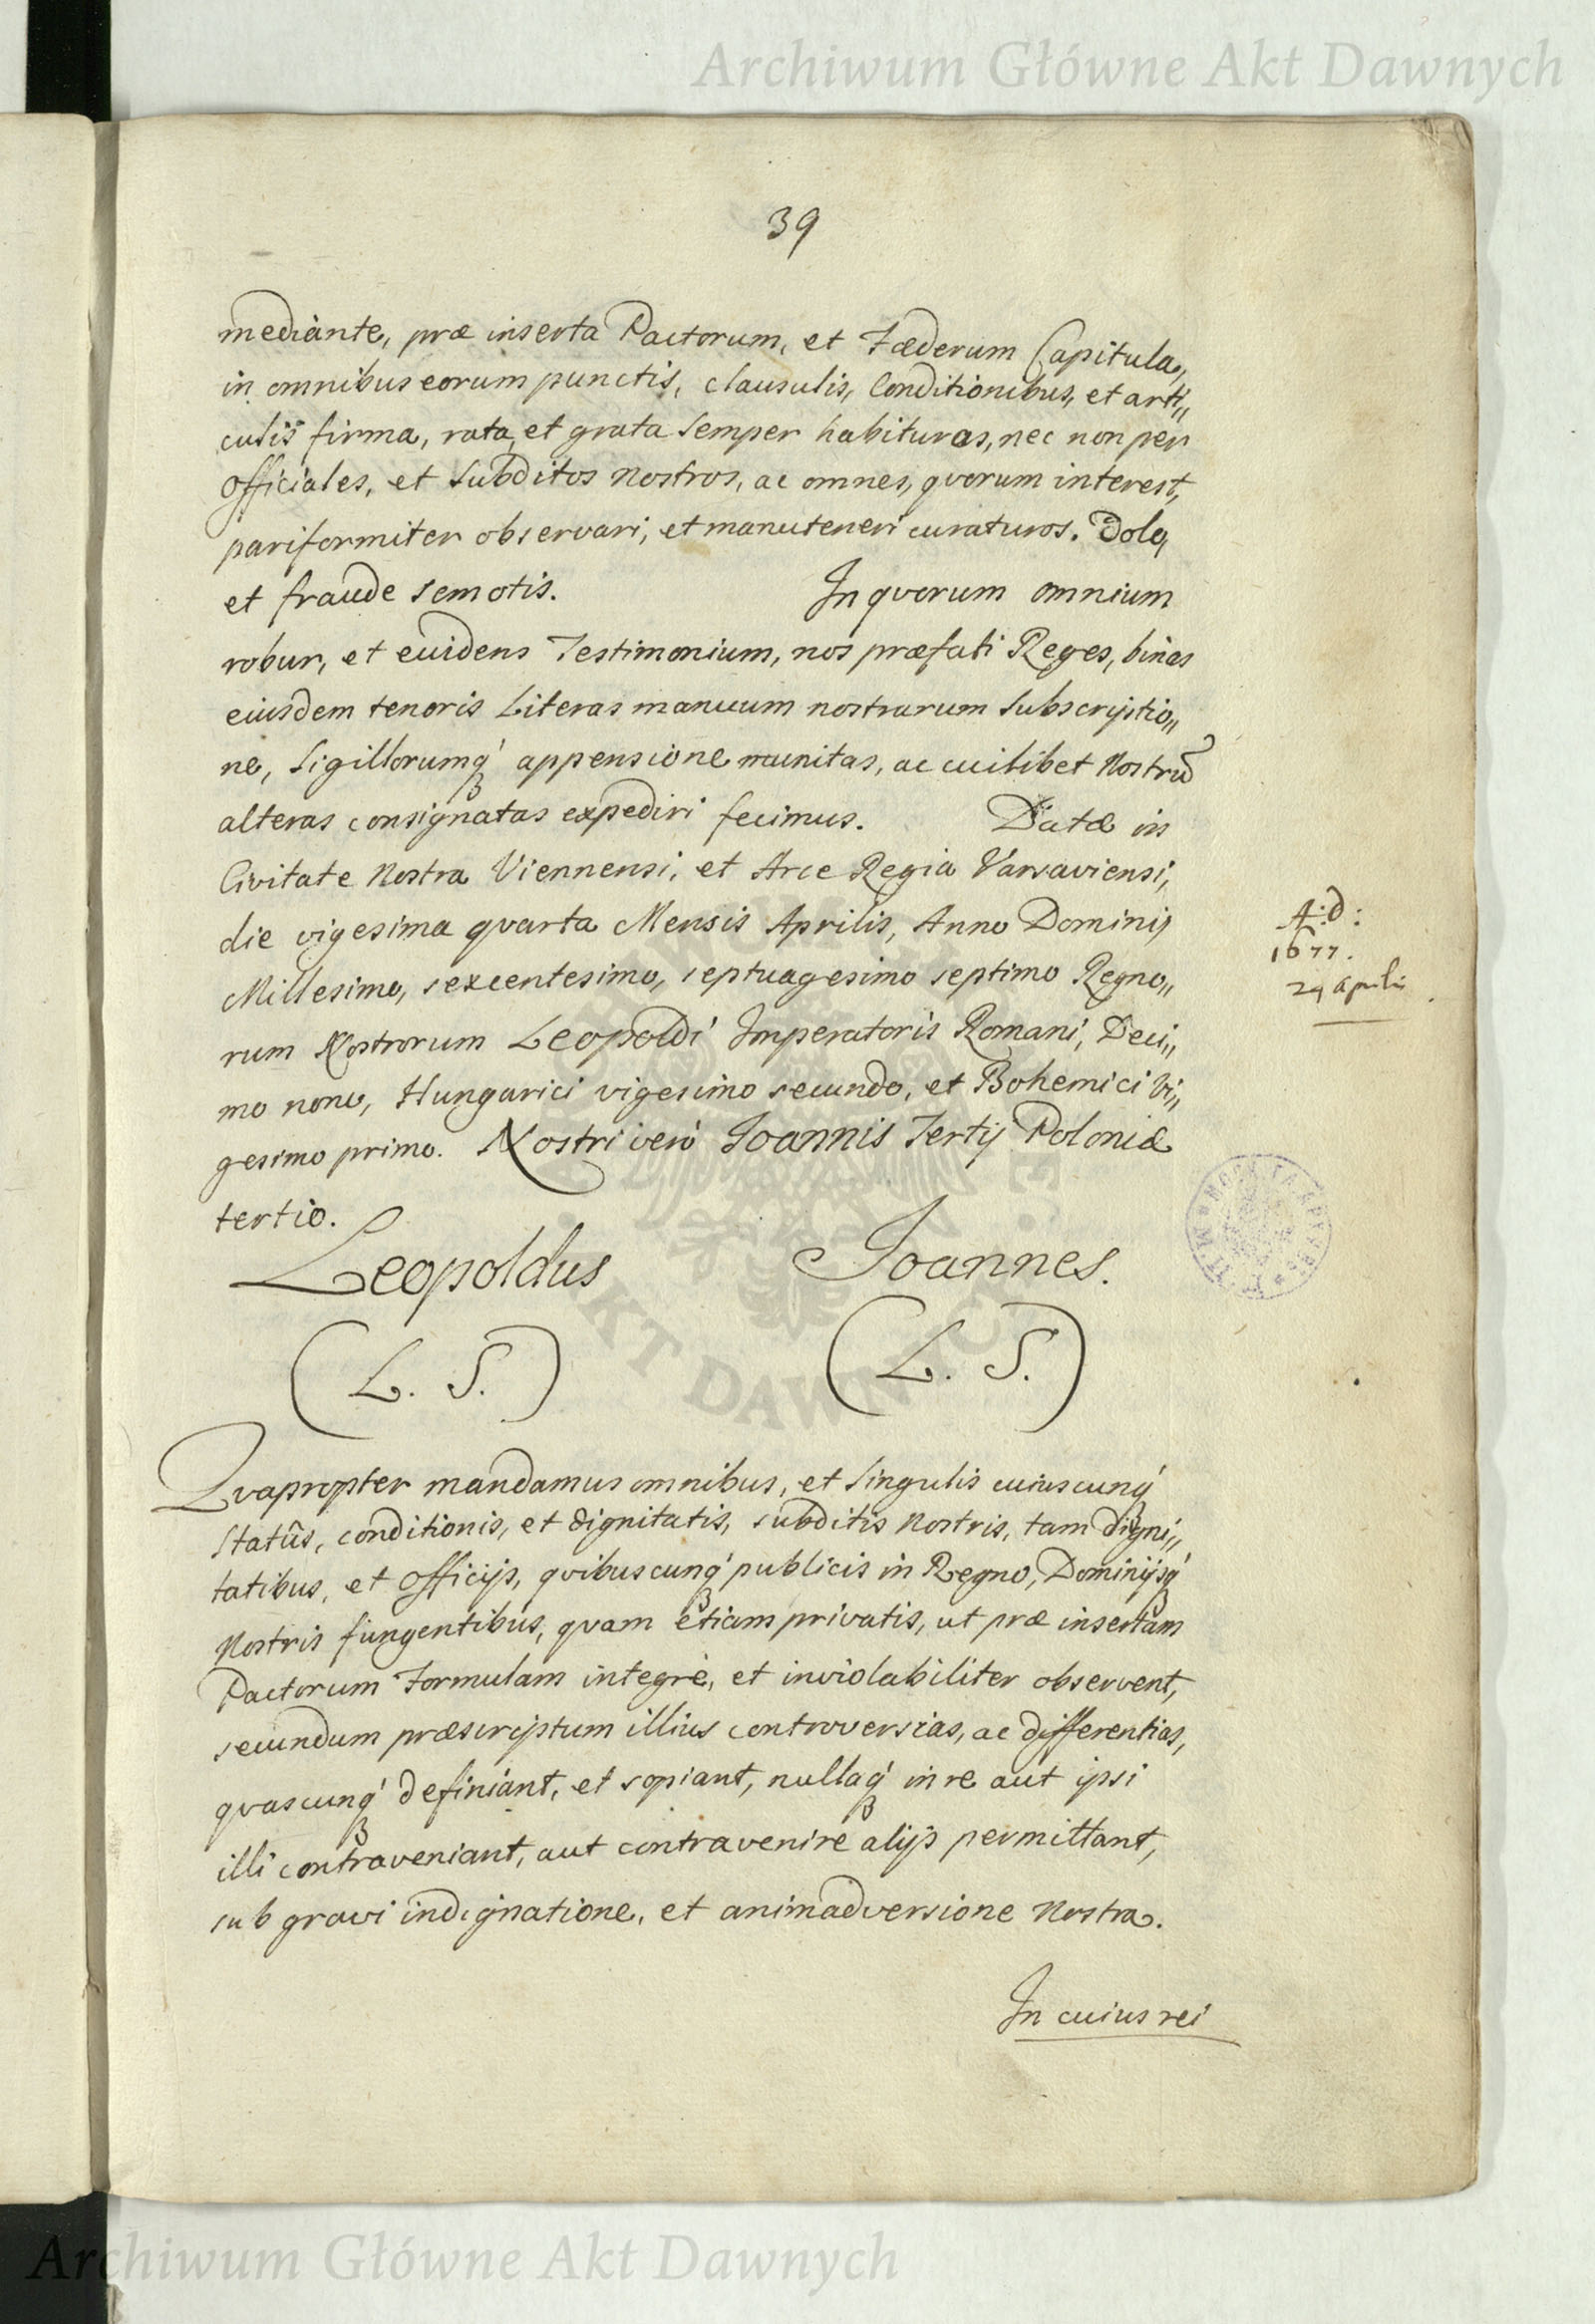 Archiwum Główne Akt Dawnych
39
mediante, præ inserta Pactorum, et Fæderum Capitula,
in omnibus eorum punctis, clausulis, Conditionibus, et arti„
culis firma, rata, et grata semper habituros, nec non per
Officiales, et Subditos nostros, ac omnes, quorum interest,
pariformiter observari, et manuteneri curaturos. Dolo,
et fraude semotis. In quorum omnium
robur, et euidens Testimonium, nos præfati Reges, binas
eiusdem tenoris Literas manuum nostrarum Subscriptio„
ne, Sigillorumq́ appensione munitas, ac cuilibet Nostrũ
alteras consignatas expediri fecimus. Datæ in
Civitate Nostra Viennensi, et Arce Regia Varsaviensi,
die vigesima quarta Mensis Aprilis, Anno Dominij
Millesimo, sexcentesimo, septuagesimo septimo Regno„
rum Nostrorum Leopoldi Imperatoris Romani, Deci„
mo nono, Hungarici vigesimo secundo, et Bohemici Vi„
gesimo primo. Nostri verò Joannis Tertij Poloniæ
tertio.
A: D:
1677.
24 Aprilis
Leopoldus Joannes.
(L. S.) (L. S.)
Quapropter mandamus omnibus, et Singulis cuiuscunq́
Statûs, conditionis, et dignitatis, subditis Nostris, tam digni„
tatibus, et Officijs, quibuscunq́ publicis in Regno, Dominijsq́
Nostris fungentibus, quam etiam privatis, ut præ insertam
Pactorum Formulam integrè, et inviolabiliter observent,
secundum præscriptum illius controversias, ac differentias,
quascunq́ definiant, et sopiant, nullaq́ in re aut ipsi
illi contraveniant, aut contravenire alijs permittant,
sub gravi indignatione, et animadversione Nostra.
In cuius rei
Archiwum Główne Akt Dawnych